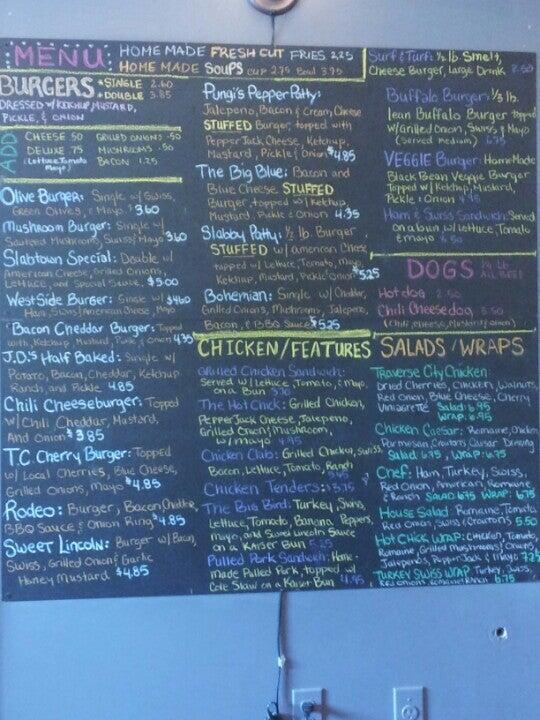 MENU
HOME MADE FRESH CUT FRIES 2.25
HOME MADE SOUPS CUP 2.75 Bowl 3.95
BURGERS • SINGLE 2.60
• DOUBLE 3.85
DRESSED W/ KETCHUP, MUSTARD,
PICKLE, & ONION
ADD
CHEESE 50 GRILLED ONIONS .50
DELUXE .75 MUSHROOMS .50
(Lettuce, Tomato BACON 1.25
Mayo)
Olive Burger: Single w/ Swiss,
Green Olives, & Mayo $3.60
Mushroom Burger: Single w/
Sauteed Mushrooms, Swiss, Mayo 3.60
Slabtown Special: Double w/
American Cheese, Grilled Onions,
Lettuce, and Special Sauce $5.00
WestSide Burger: Single w/ $4.60
Ham, Swiss/American Cheese, Mayo
Bacon Cheddar Burger: Topped
with, Ketchup, Mustard, Pickle, & Onion 4.35
J.D.'s Half Baked: Single w/
Potato, Bacon, Cheddar, Ketchup
Ranch, and Pickle 4.85
Chili Cheeseburger: Topped
w/ Chili Cheddar, Mustard,
And Onion $3.85
T.C. Cherry Burger: Topped
w/ Local Cherries, Blue Cheese,
Grilled Onions, Mayo $4.85
Rodeo: Burger, Bacon, Cheddar,
BBQ Sauce & Onion Ring $4.85
Sweet Lincoln: Burger w/ Bacon,
Swiss, Grilled Onion & Garlic
Honey Mustard $4.85
Pungi's Pepper Patty:
Jalapeno, Bacon & Cream Cheese
STUFFED Burger, topped with
Pepper Jack Cheese, Ketchup,
Mustard, Pickle & Onion $4.85
The Big Blue: Bacon and
Blue Cheese STUFFED
Burger, topped w/ Ketchup,
Mustard, Pickle & Onion 4.35
Slabby Patty: 1/2 lb. Burger
STUFFED w/ american Cheese
topped w/ Lettuce, Tomato, Mayo,
Ketchup, Mustard, Pickle, Onion $5.25
Bohemian: Single w/ Cheddar,
Grilled Onions, Mushrooms, Jalapeno,
Bacon, & BBQ Sauce $5.25
CHICKEN/FEATURES
Grilled Chicken Sandwich:
Served w/ Lettuce, Tomato, & Mayo
on a Bun
The Hot Chick: Grilled Chicken,
Pepper Jack Cheese, Jalepeno,
Grilled Onion & Mushroom,
w/ Mayo 4.95
Chicken Club: Grilled Chicken, Swiss,
Bacon, Lettuce, Tomato, Ranch
Chicken Tenders:
The Big Bird: Turkey, Swiss,
Lettuce, Tomato, Banana Peppers,
Mayo, and Sweet Lincoln Sauce
on a Kaiser Bun
Pulled Pork Sandwich: Home-
made Pulled Pork, topped w/
Cole Slaw on a Kaiser Bun 4.95
Surf & Turf: 1/2 lb. Smelt,
Cheese Burger, Large Drink
Buffalo Burger: 1/3 lb.
lean Buffalo Burger topped
w/ Grilled Onion, Swiss & Mayo
(Served medium) 6.75
VEGGIE Burger: Home Made
Black Bean Veggie Burger
Topped w/ Ketchup, Mustard,
Pickle & Onion 4.75
Ham & Swiss Sandwich: Served
on a bun w/ Lettuce, Tomato
& Mayo
DOGS
Hot dog 2.50
Chili Cheese dog 3.50
(Chili, Cheese, Mustard, Onion)
SALADS/WRAPS
Traverse City Chicken
Dried Cherries, Chicken, Walnuts,
Red Onion, Blue Cheese, Cherry
Vinaigrette Salad: 6.95
Wrap: 6.95
Chicken Caesar: Romaine, Chicken
Parmesan, Croutons, Caesar Dressing
Salad 6.75, Wrap: 6.75
Chef: Ham, Turkey, Swiss,
Red Onion, American, Romaine
& Ranch Salad 6.75 Wrap: 6.75
House Salad: Romaine, Tomato
Red Onion, Swiss & Croutons 5.50
Hot Chick Wrap: Chicken, Tomato,
Romaine, Grilled Mushrooms & Onions,
Jalepenos, Pepper Jack & Mayo 7.25
Turkey Swiss Wrap Turkey, Swiss,
Red Onions, Romaine, Ranch 6.75